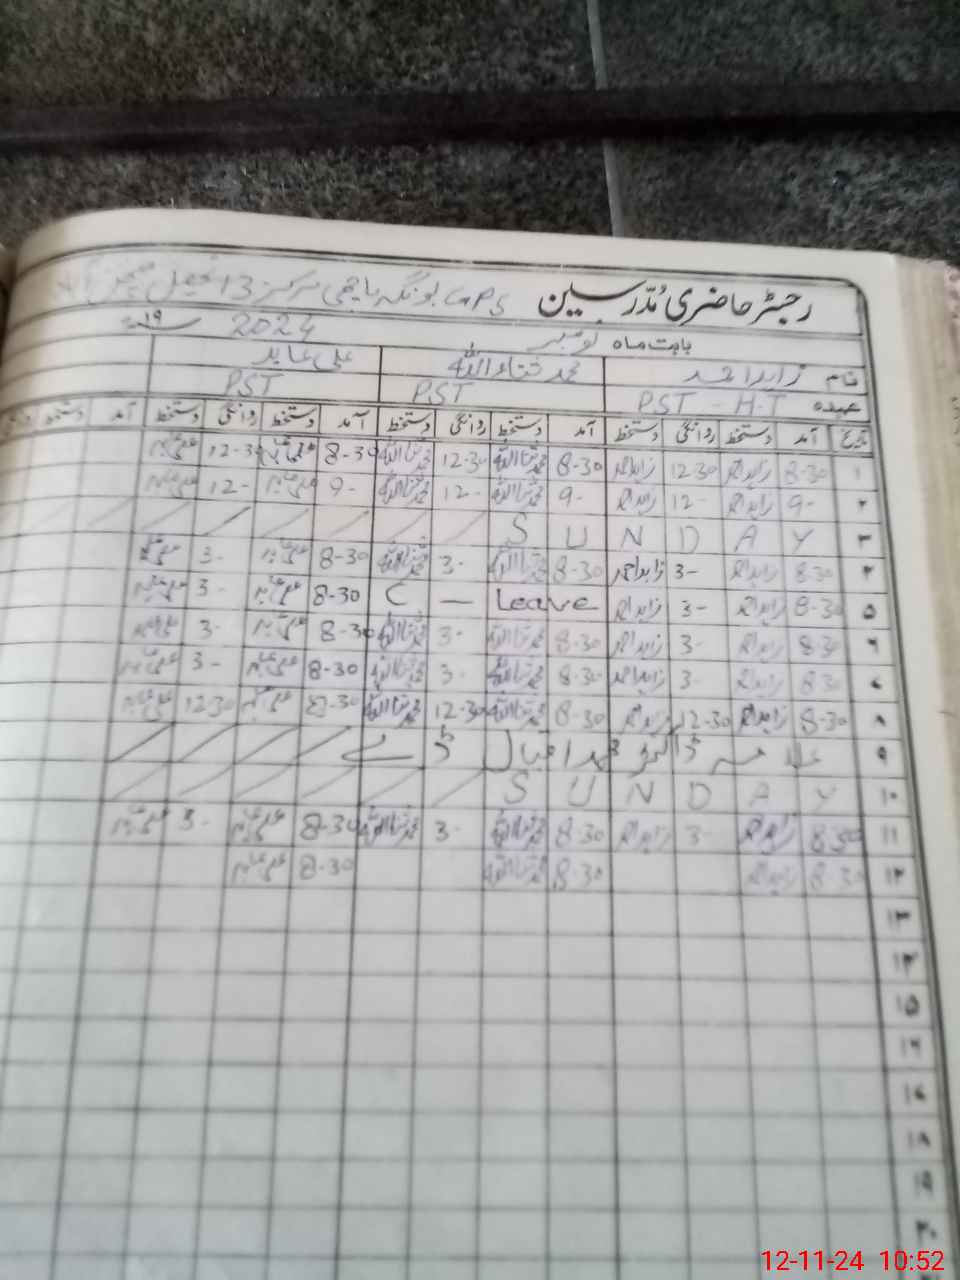 رجسٹر حاضری مُدرّسین GPS بونگہ باجھی مرکز 13 تحصیل
بابت ماہ نومبر 2024 ۱۹
نام زاہد احمد محمد ثناء اللہ علی عابد
عہدہ PST - H.T PST PST
تاریخ آمد دستخط روانگی دستخط آمد دستخط روانگی دستخط آمد دستخط روانگی دستخط آمد دستخط
۱ 8-30 زاہد احمد 12-30 زاہد احمد 8-30 محمد ثناء اللہ 12-30 محمد ثناء اللہ 8-30 علی عابد 12-30 علی عابد
۲ 9- زاہد احمد 12- زاہد احمد 9- محمد ثناء اللہ 12- محمد ثناء اللہ 9- علی عابد 12- علی عابد
۳ S U N D A Y
۴ 8-30 زاہد احمد 3- زاہد احمد 8-30 محمد ثناء اللہ 3- محمد ثناء اللہ 8-30 علی عابد 3- علی عابد
۵ 8-30 زاہد احمد 3- زاہد احمد Leave — C 8-30 علی عابد 3- علی عابد
۶ 8-30 زاہد احمد 3- زاہد احمد 8-30 محمد ثناء اللہ 3- محمد ثناء اللہ 8-30 علی عابد 3- علی عابد
۷ 8-30 زاہد احمد 3- زاہد احمد 8-30 محمد ثناء اللہ 3- محمد ثناء اللہ 8-30 علی عابد 3- علی عابد
۸ 8-30 زاہد احمد 12-30 زاہد احمد 8-30 محمد ثناء اللہ 12-30 محمد ثناء اللہ 8-30 علی عابد 12-30 علی عابد
۹ علامہ ڈاکٹر محمد اقبال ڈے
۱۰ S U N D A Y
۱۱ 8-30 زاہد احمد 3- زاہد احمد 8-30 محمد ثناء اللہ 3- محمد ثناء اللہ 8-30 علی عابد 3- علی عابد
۱۲ 8-30 زاہد احمد 8-30 محمد ثناء اللہ 8-30 علی عابد
۱۳
۱۴
۱۵
۱۶
۱۷
۱۸
۱۹
۲۰
12-11-24 10:52